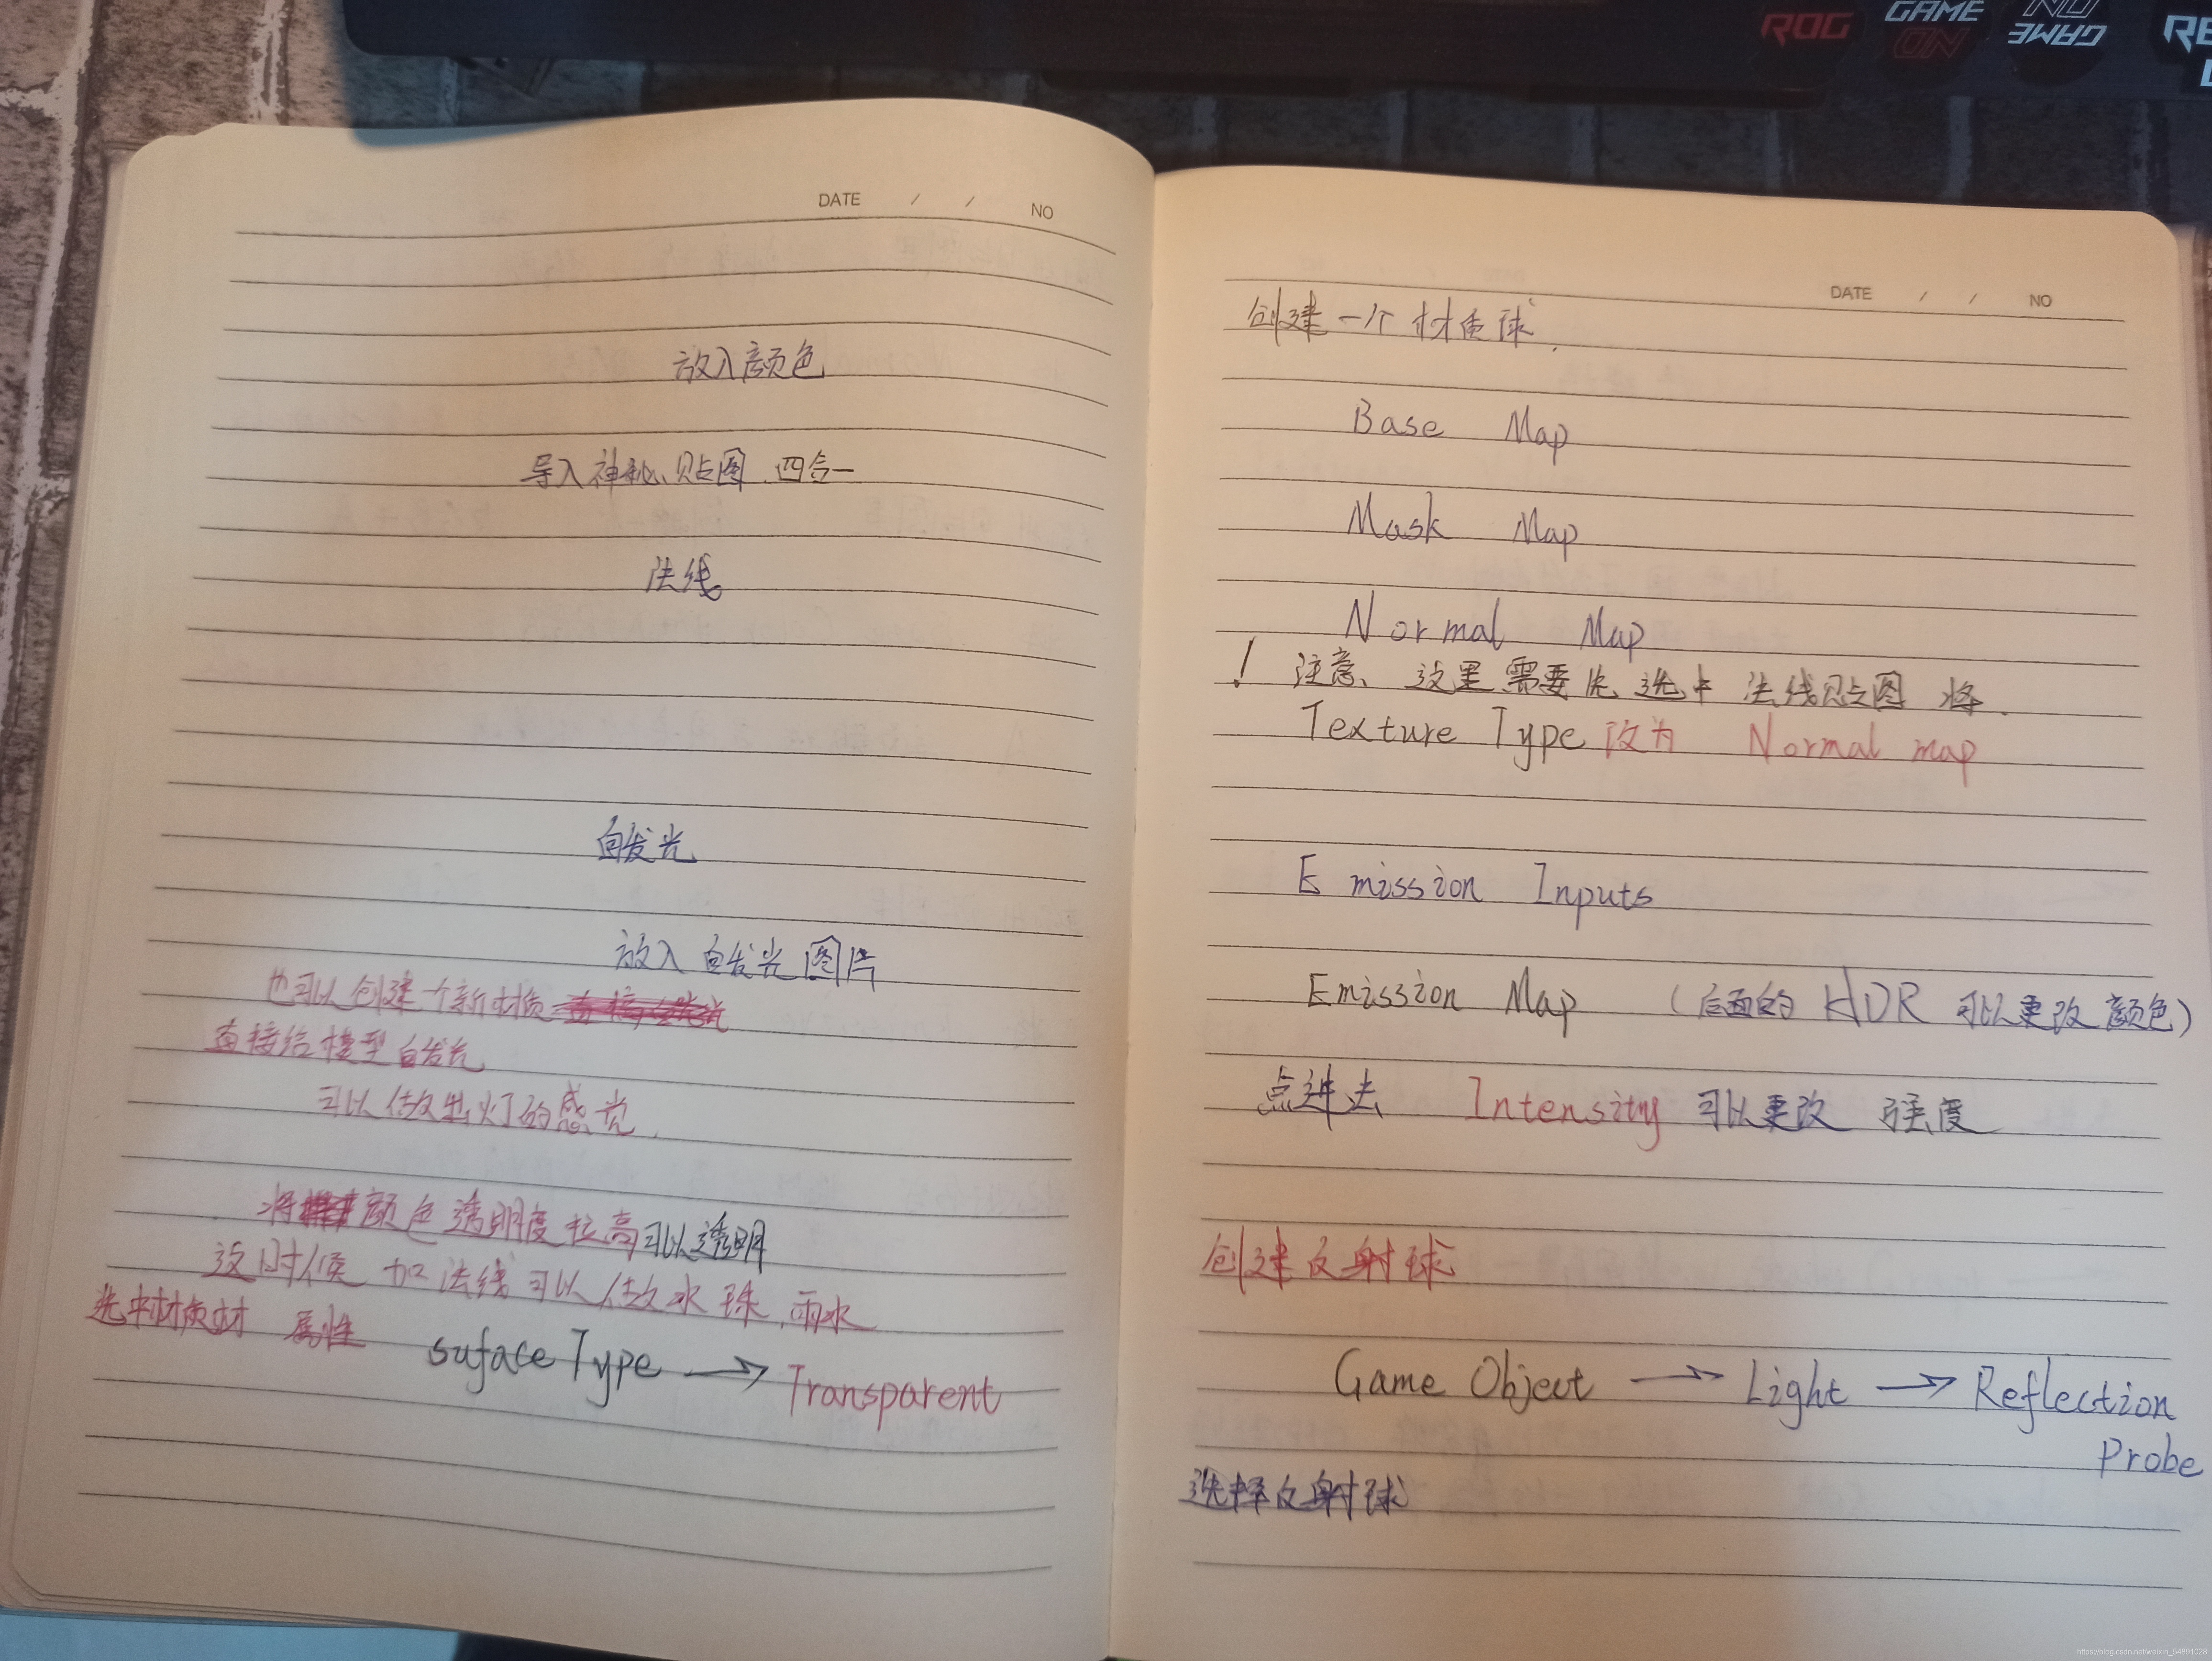 ROG
GAME ON
GAME ON
DATE / / NO
放入颜色
导入神秘贴图 四合一
法线
自发光
放入自发光图片
也可以创建个新材质
直接给模型自发光
可以做出灯的感觉
将颜色透明度拉高可以透明
这时候 加法线可以做水珠、雨水
选中材质材 属性 suface Type → Transparent
DATE / / NO
创建一个材质球
Base Map
Mask Map
Normal Map
! 注意、这里需要先选中法线贴图 将
Texture Type 改为 Normal map
Emission Inputs
Emission Map (后面的HDR可以更改颜色)
点进去 Intensity 可以更改 强度
创建反射球
Game Object → Light → Reflection
Probe
选择反射球
https://blog.csdn.net/weixin_54891028